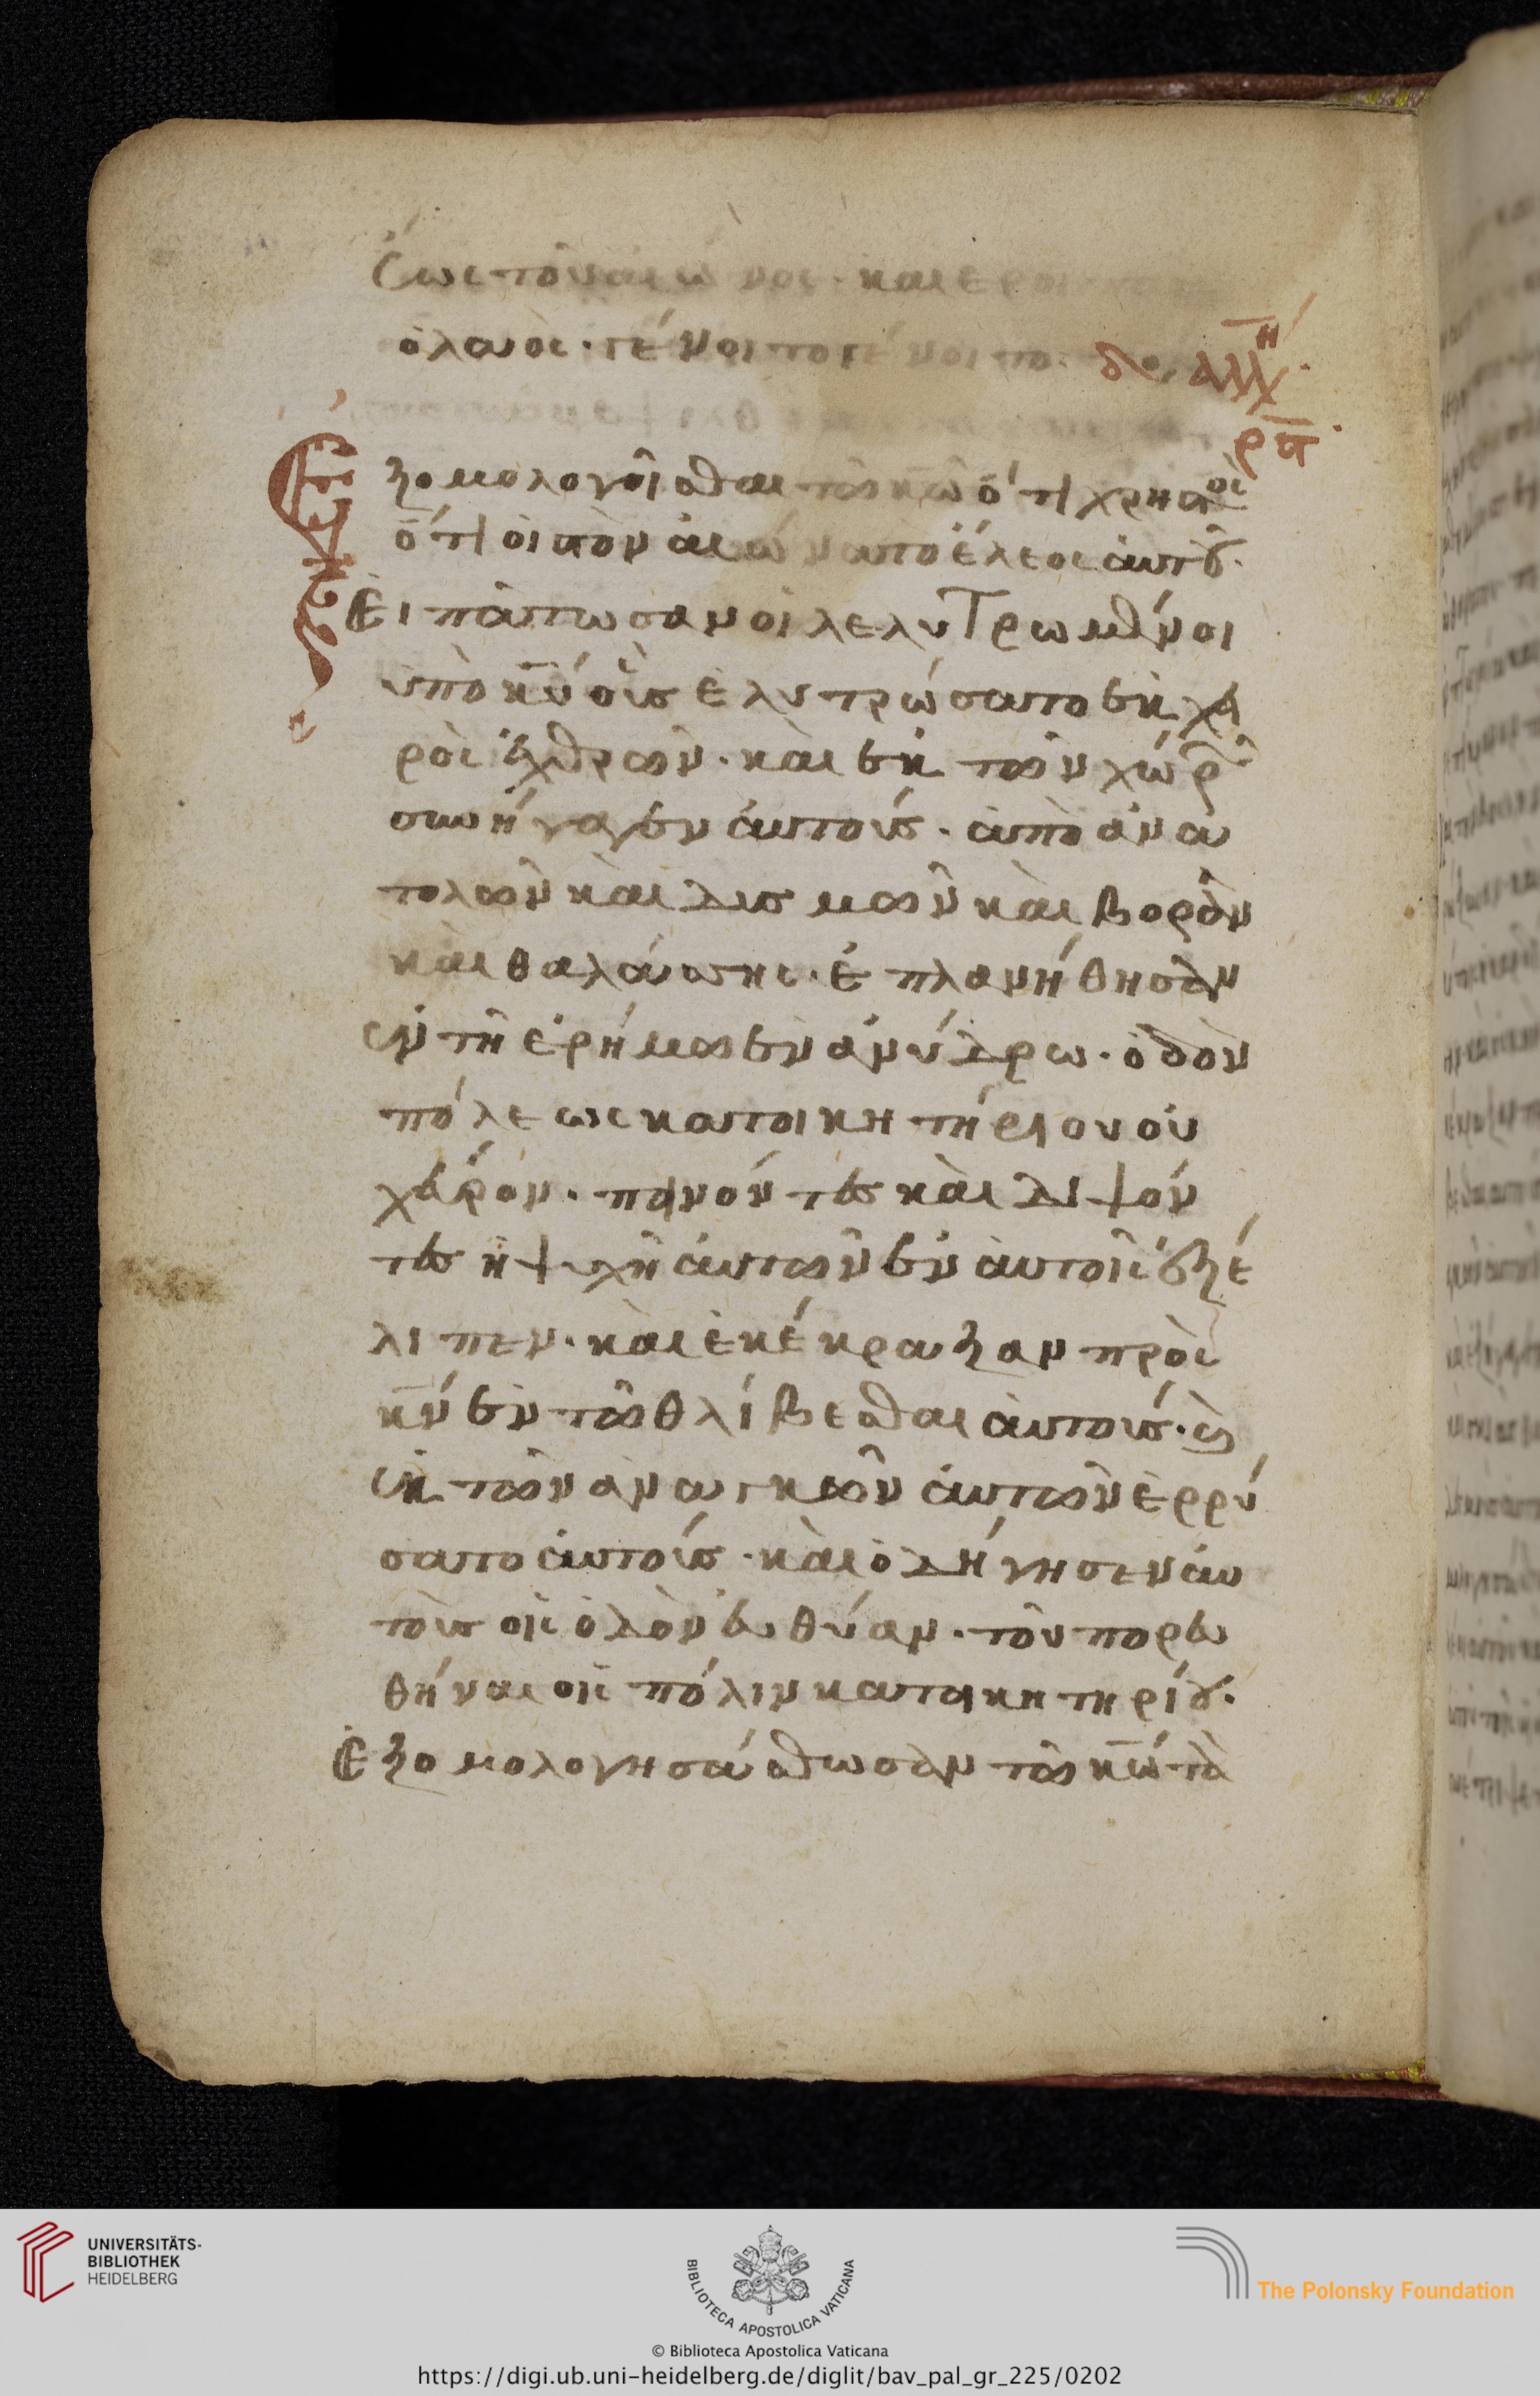 ἕως τοῦ αἰῶνος · καὶ ἐρεῖ
ὁ λαὸς · γένοιτο γένοιτο · δο ἀλλη
ρϛ
ξομολογεῖσθαι τῶ κω ὅτι χρηστὸς
ὅτι εἰς τὸν αἰῶνα τὸ ἔλεος αὐτοῦ ·
Εἰπάτωσαν οἱ λελυτρωμένοι
ὑπὸ κυ οὓς ἐλυτρώσατο ἐκ χει
ρὸς ἐχθρῶν · καὶ ἐκ τῶν χωρῶ
συνήγαγεν αὐτούς · ἀπὸ ἀνα
τολῶν καὶ δυσμῶν καὶ βορρὰν
καὶ θαλάσσης · ἐπλανήθησαν
ἐν τῆ ἐρήμω ἐν ἀνύδρω · ὁδὸν
πόλεως κατοικητήριον οὐ
χεῦρον · πεινόντες καὶ διψόν
τες ἡ ψυχὴ αὐτῶν ἐν αὐτοῖς ἐξέ
λιπεν · καὶ ἐκέκραξαν πρὸς
κν ἐν τῶ θλίβεσθαι αὐτούς · κ
ἐκ τῶν ἀναγκῶν αὐτῶν ἐρρύ
σατο αὐτούς · καὶ ὁδήγησεν αὐ
τοὺς εἰς ὁδὸν εὐθύαν · τοῦ πορευ
θῆναι εἰς πόλιν κατοικητηρίου ·
Ἐξομολογησάσθωσαν τῶ κω τὰ
UNIVERSITÄTS-
BIBLIOTHEK
HEIDELBERG
BIBLIOTECA APOSTOLICA VATICANA
The Polonsky Foundation
© Biblioteca Apostolica Vaticana
https://digi.ub.uni-heidelberg.de/diglit/bav_pal_gr_225/0202